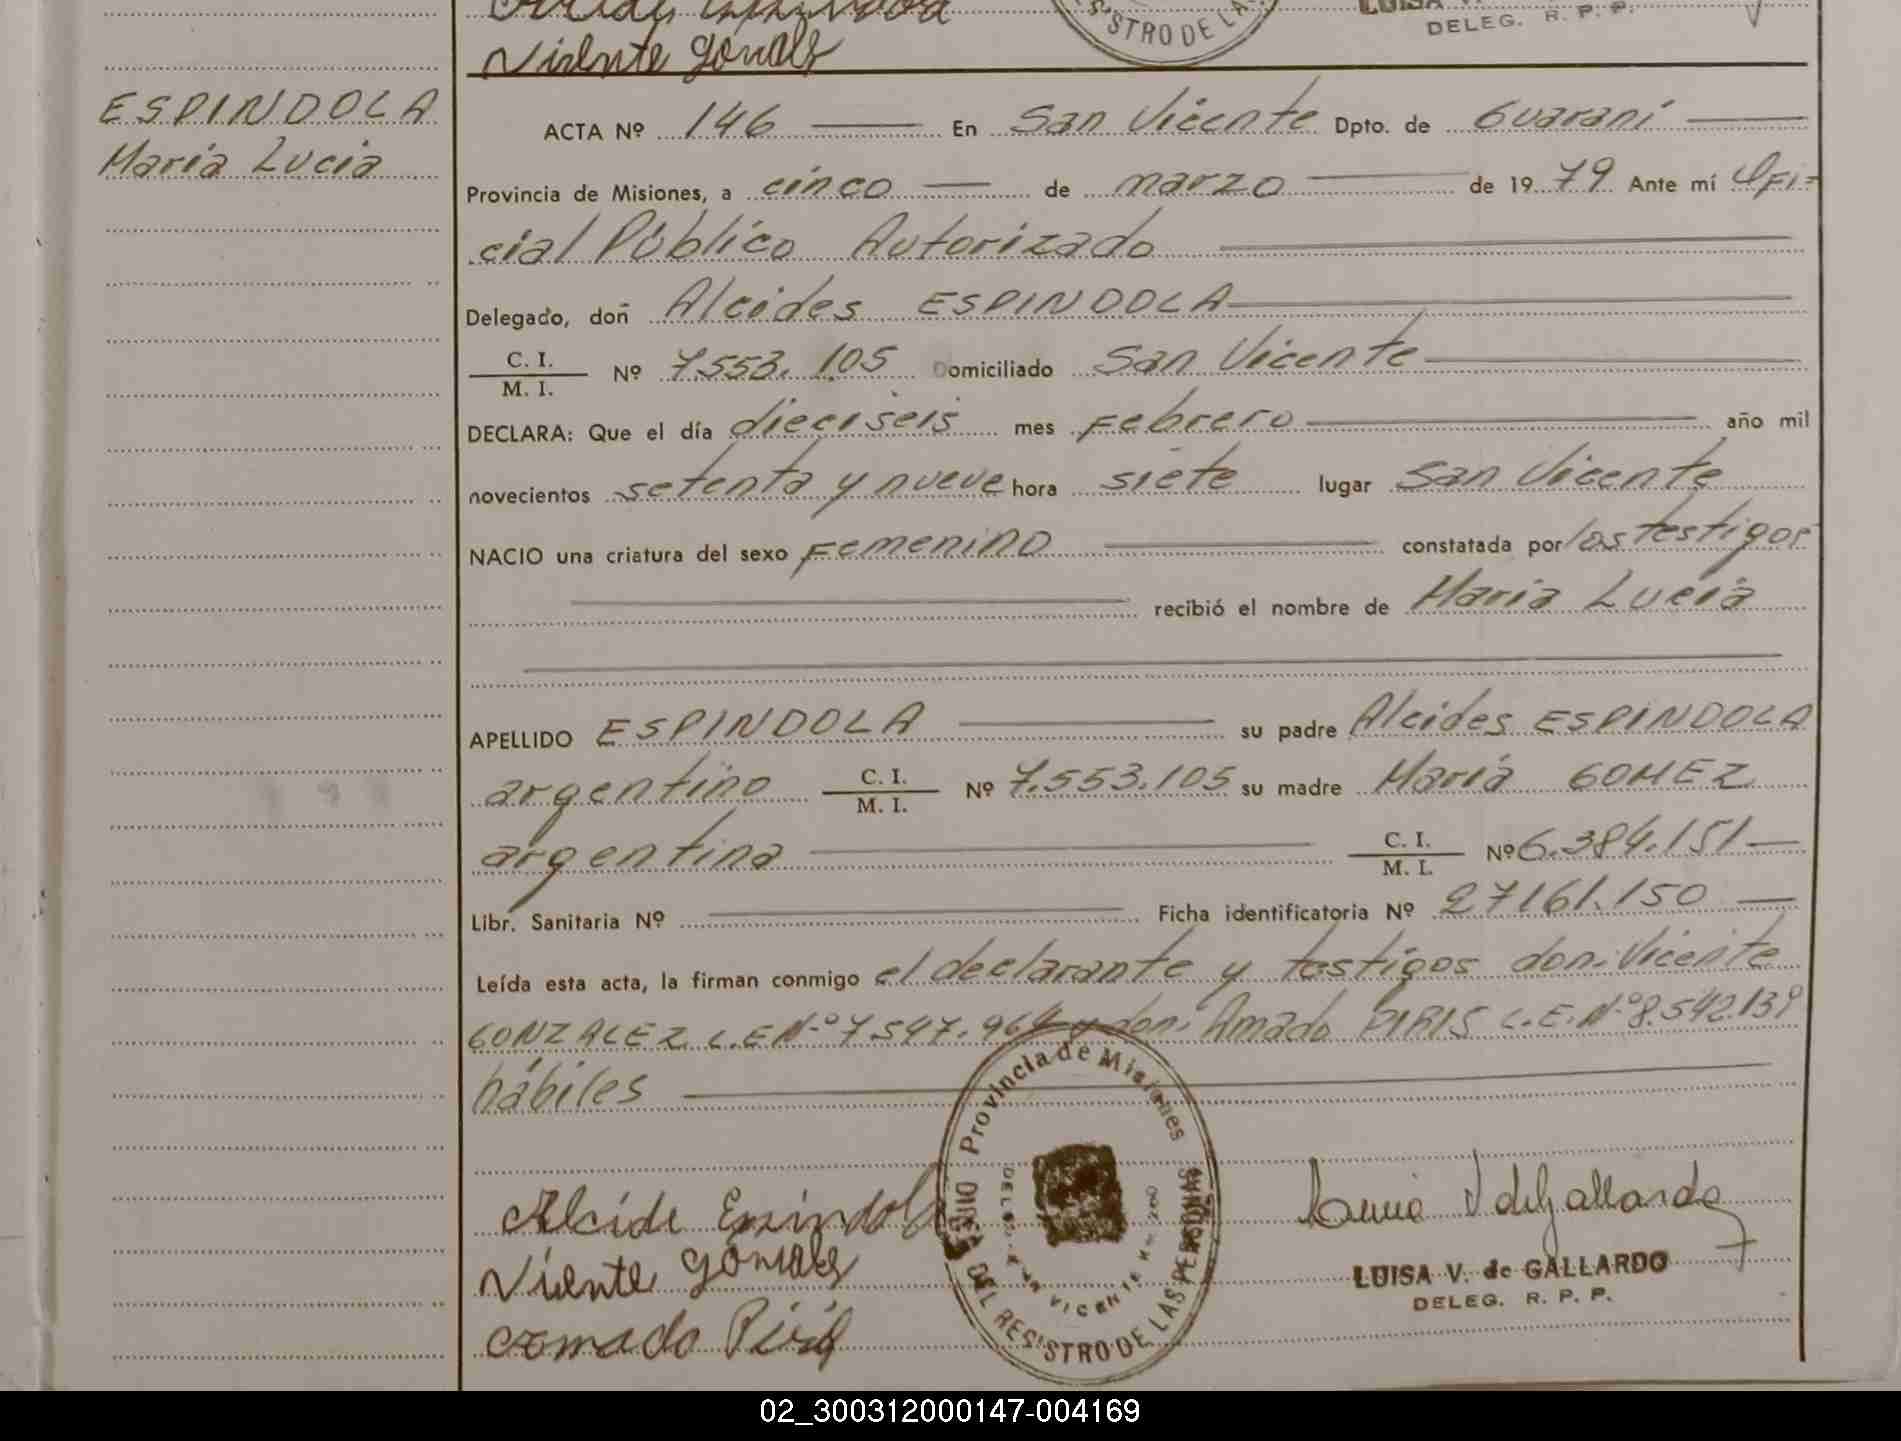 Vicente Gonzalez
STRO DE LAS
LUISA V.
DELEG. R. P. P.
ESPINDOLA
Maria Lucia
ACTA Nº 146 En San Vicente Dpto. de Guaraní
Provincia de Misiones, a cinco de marzo de 1979 Ante mí Ofi-
cial Público Autorizado
Delegado, don Alcides ESPINDOLA
C. I.
M. I. Nº 7.553.105 Domiciliado San Vicente
DECLARA: Que el día dieciseis mes Febrero año mil
novecientos setenta y nueve hora siete lugar San Vicente
NACIO una criatura del sexo Femenino constatada por los testigos
recibió el nombre de Maria Lucia
APELLIDO ESPINDOLA su padre Alcides ESPINDOLA
argentino C. I.
M. I. Nº 7.553.105 su madre María GOMEZ
argentina C. I.
M. I. Nº 6.384.151
Libr. Sanitaria Nº Ficha identificatoria Nº 27161.150
Leída esta acta, la firman conmigo el declarante y testigos don: Vicente
GONZALEZ L.E Nº 7.547.964 y don: Amado PIRIS L.E. Nº 8.542.139
hábiles
Provincia de Misiones
DEL REGISTRO DE LAS PERSONAS
VICENTE
Alcide Espindola
Vicente Gonzalez
Amado Piris
Luisa V de Gallardo
LUISA V. de GALLARDO
DELEG. R. P. P.
02_300312000147-004169